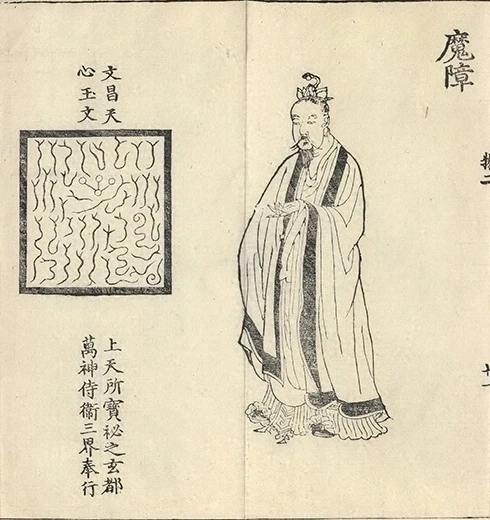 魔障
文昌天
心玉文
上天所寶祕之玄都
萬神侍衞三界奉行